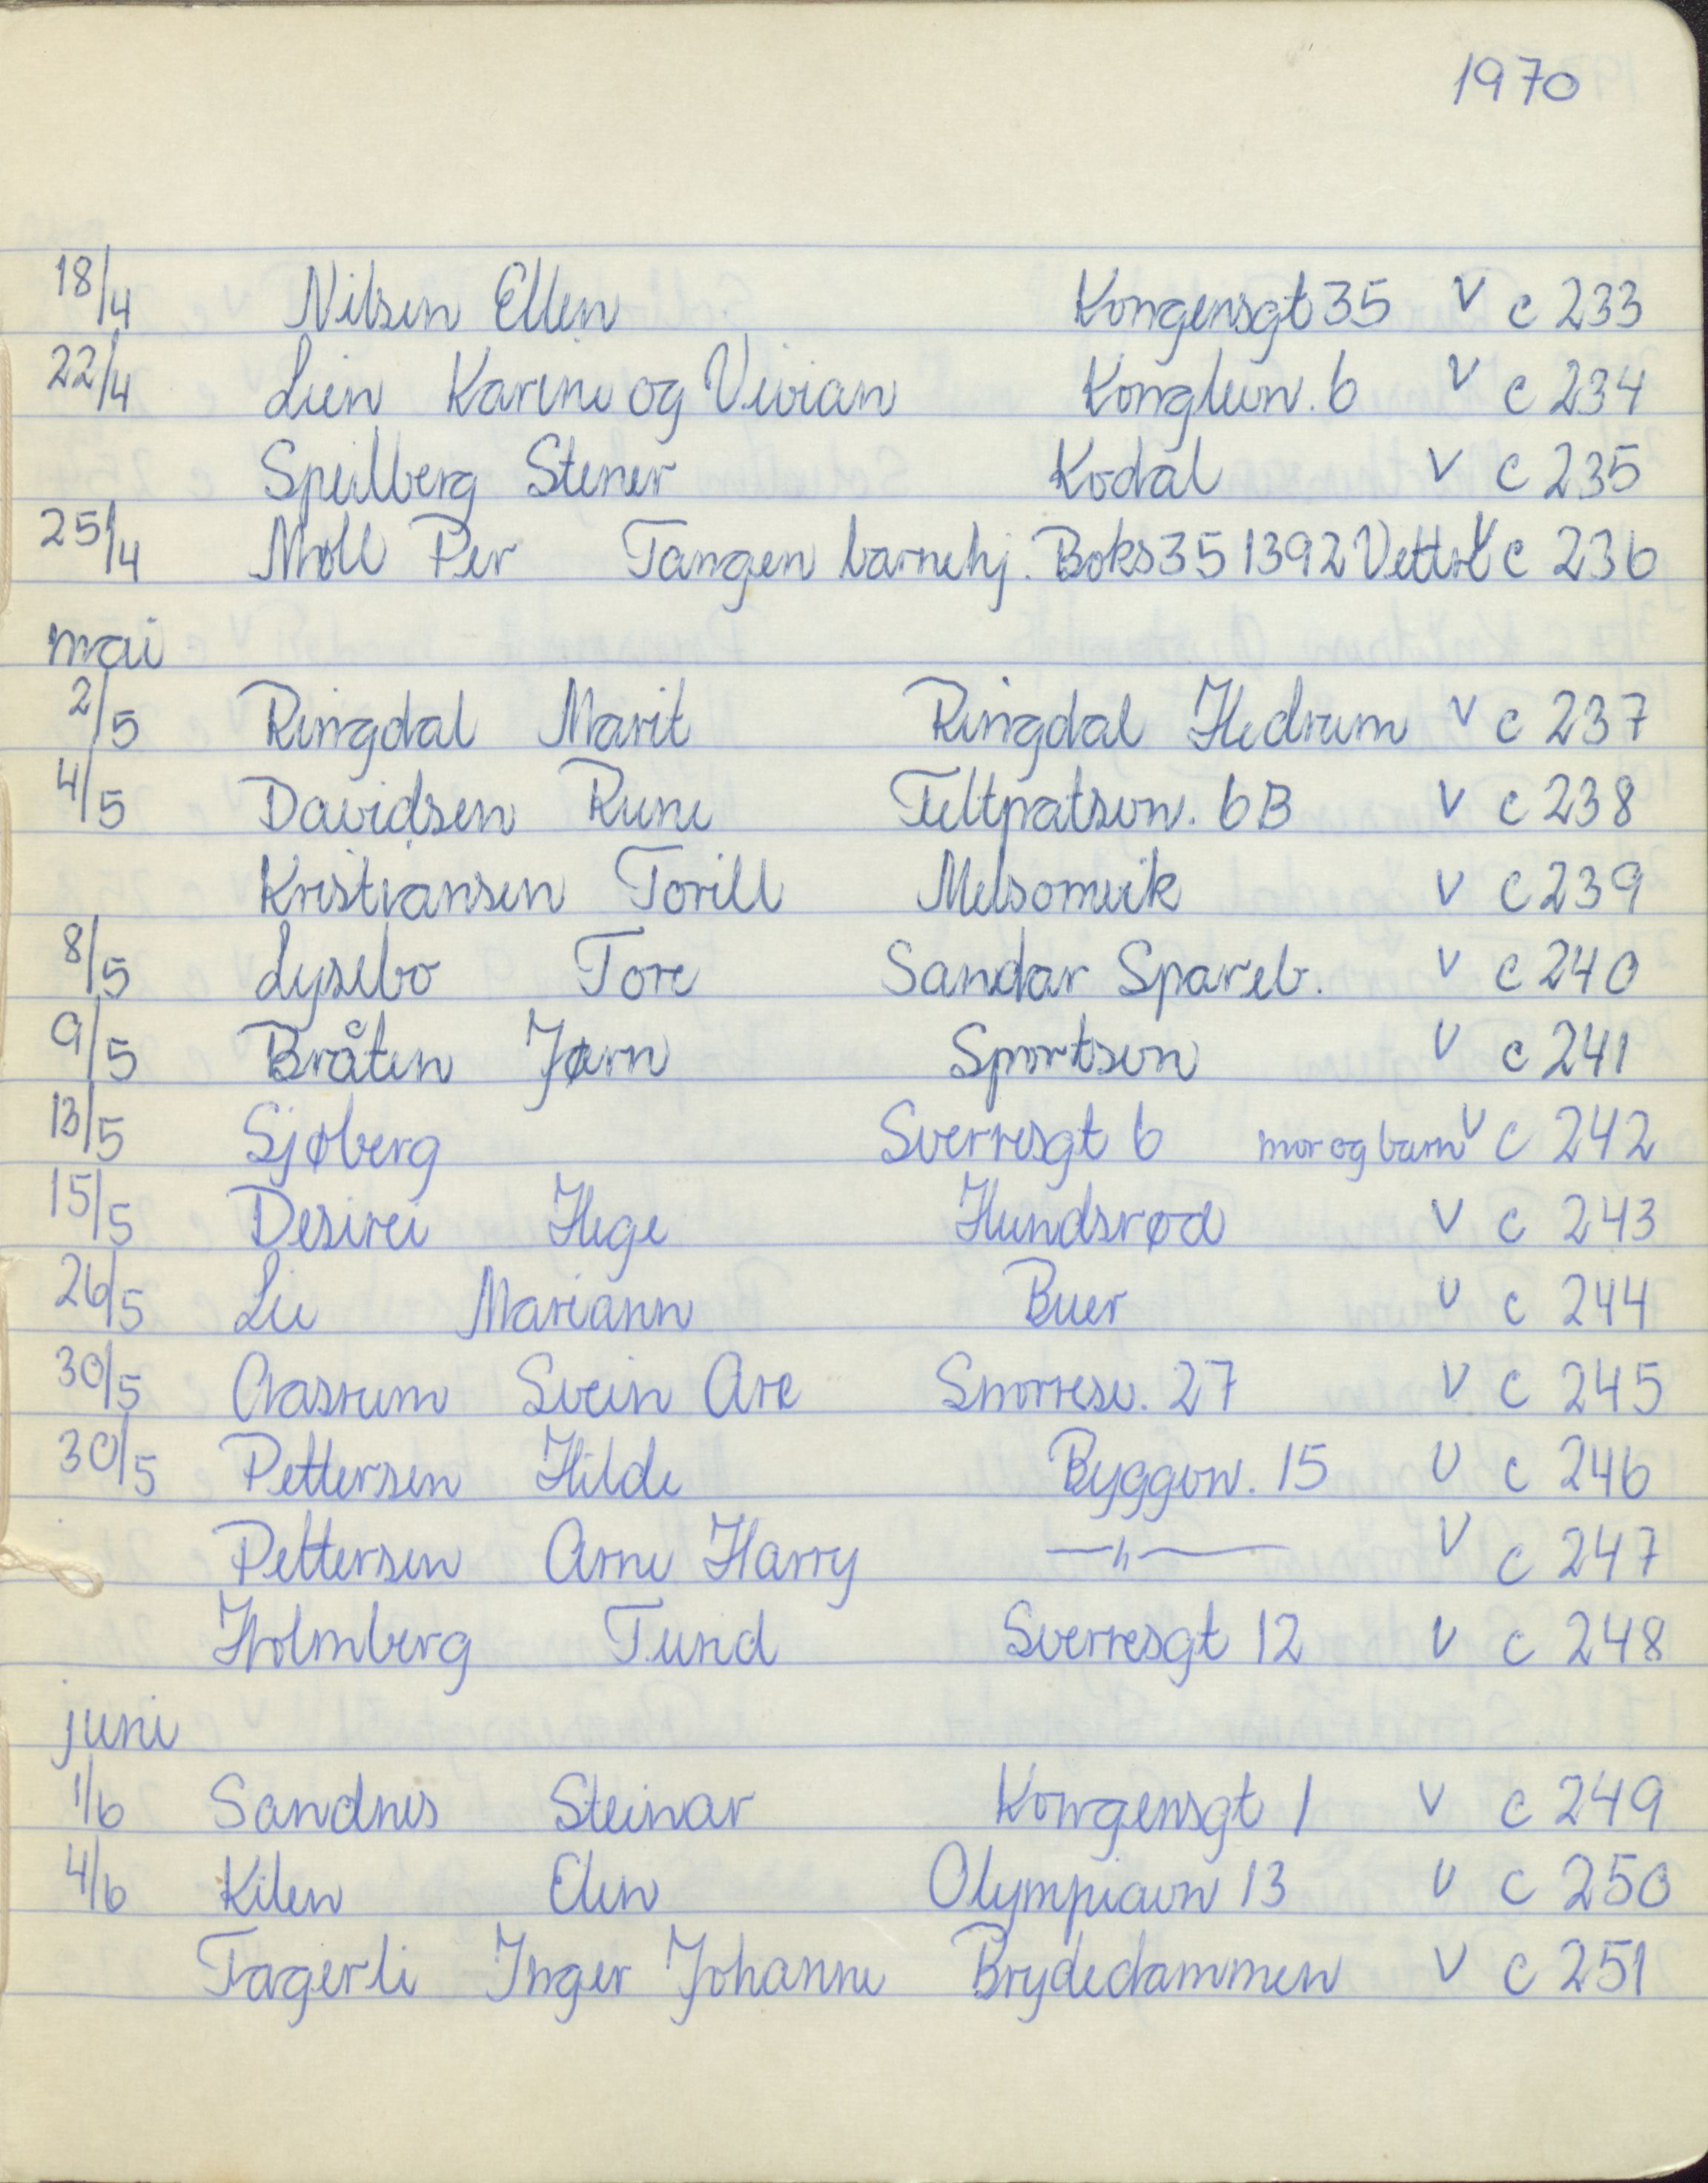 1970
18/4 Nilsen Ellen Kongensgt 35 V c 233
22/4 Lien Karine og Vivian Konglevn. 6 V c 234
Speilberg Stener Kodal V c 235
25/4 Moll Per Tangen barnehj. Boks 35 1392 Vettre V c 236
mai
2/5 Ringdal Marit Ringdal Hedrum V c 237
4/5 Davidsen Rune Feltpatsvn. 6B V c 238
Kristiansen Torill Melsomvik V c 239
8/5 Lysebo Tore Sandar Spareb. V c 240
9/5 Bråten Jørn Sportsvn V c 241
13/5 Sjøberg Sverresgt 6 mor og barn V c 242
15/5 Desirei Hege Hundsrød V c 243
26/5 Lie Mariann Buer V c 244
30/5 Aasrum Svein Are Snorresv. 27 V c 245
30/5 Pettersen Hilde Byggvn. 15 V c 246
Pettersen Arne Harry —"— V c 247
Holmberg Sverresgt 12 V c 248
juni
1/6 Sandnes Steinar Kongensgt 1 V c 249
4/6 Kilen Elen Olympiavn 13 V c 250
Fagerli Inger Johanne Brydedammen V c 251